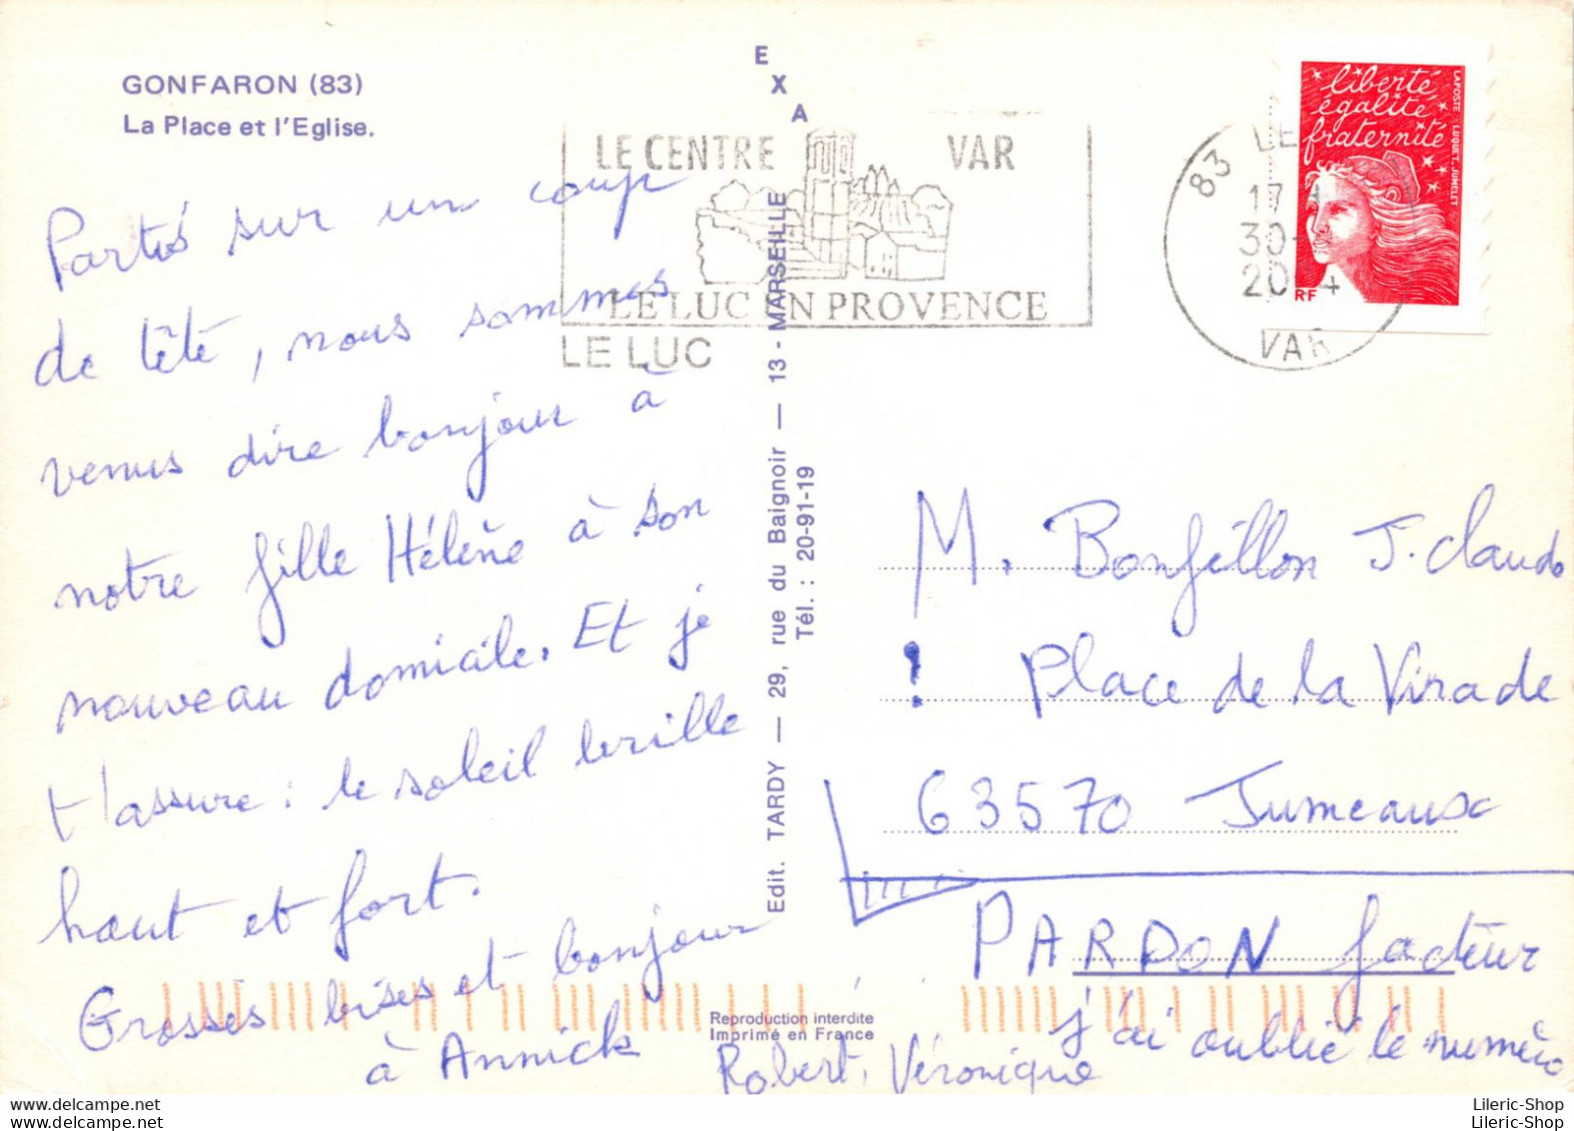 GONFARON (83)
La Place et l'Eglise.
EXA
LE CENTRE VAR
LE LUC EN PROVENCE
LE LUC
83 LE
17
30-
20 4
VAR
liberté
égalité
fraternité
LAPOSTE LUQUET, JUMELET
RF
Partis sur un coup
de tête, nous sommes
venus dire bonjour à
notre fille Hélène à son
nouveau domicile. Et je
t'assure : le soleil brille
haut et fort.
Grosses bises et bonjour
à Annick
Robert, Véronique
Edit. TARDY — 29, rue du Baignoir — 13 - MARSEILLE
Tél. : 20-91-19
Reproduction interdite
Imprimé en France
M. Bonfillon J. Claude
! Place de la Virade
63570 Jumeaux
PARDON facteur
j'ai oublié le numéro
Lileric-Shop
Lileric-Shop